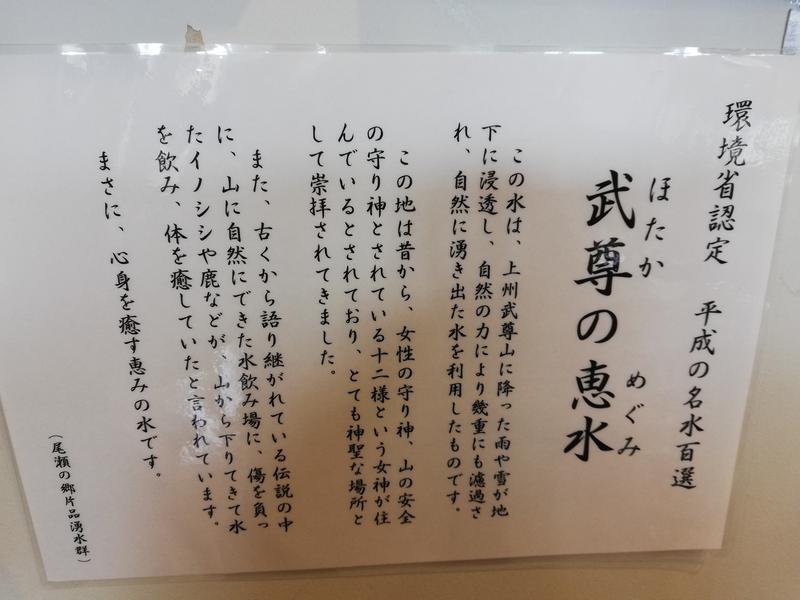 環境省認定　平成の名水百選
ほたか　めぐみ
武尊の恵水
この水は、上州武尊山に降った雨や雪が地
下に浸透し、自然の力により幾重にも濾過さ
れ、自然に湧き出た水を利用したものです。
この地は昔から、女性の守り神、山の安全
の守り神とされている十二様という女神が住
んでいるとされており、とても神聖な場所と
して崇拝されてきました。
また、古くから語り継がれている伝説の中
に、山に自然にできた水飲み場に、傷を負っ
たイノシシや鹿などが、山から下りてきて水
を飲み、体を癒していたと言われています。
まさに、心身を癒す恵みの水です。
（尾瀬の郷片品湧水群）